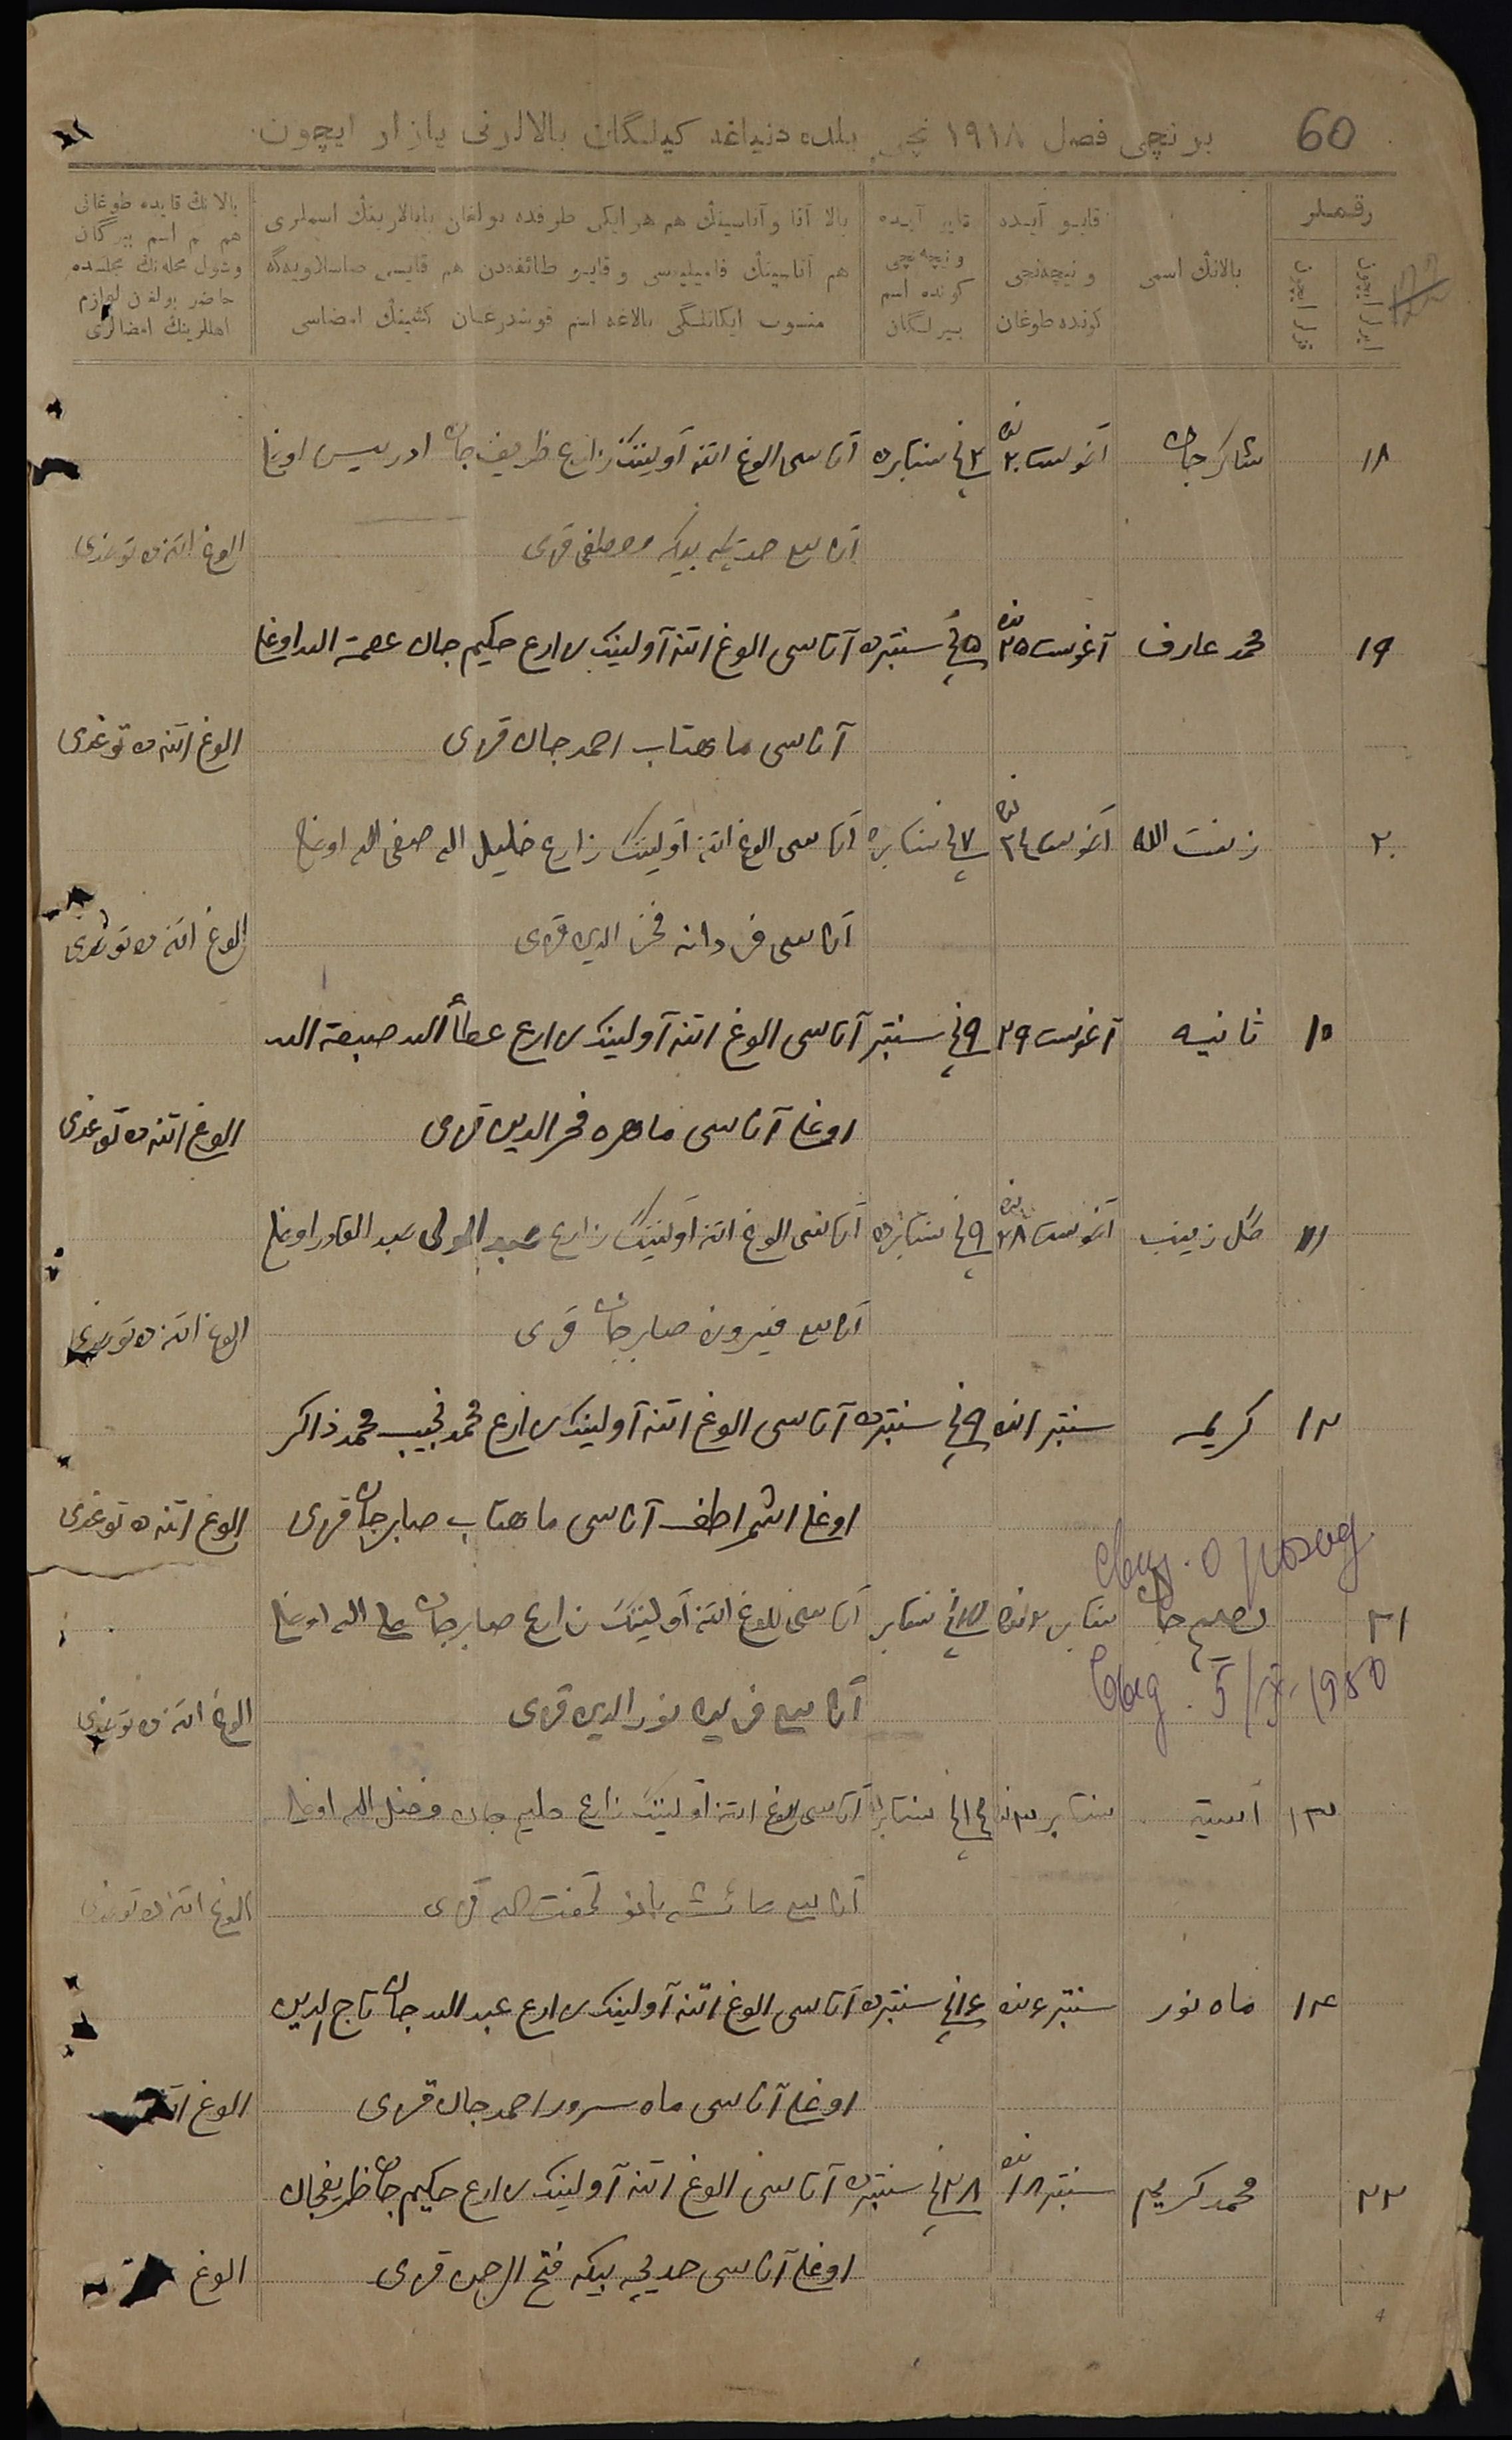 60
برنچی فصل ١٩١٨ نچی یلده دنیاغه کیلگان بالالرنی یازار ایچون
رقملر
ایرلر ایچون
قزلر ایچون
بالانڭ اسمی
قایو آیده و نیچه‌نچی کونده طوغان
قایو آیده و نیچه‌نچی کونده اسم بیرلگان
بالا آتا و آناسینڭ هم هر ایکی طرفده بولغان بابالارینڭ اسملری
هم آتاسینڭ فامیلیه‌سی و قایو طائفه‌دن هم قایسی صاسلاویه‌گه
منسوب ایکانلگی بالاغه اسم قوشدرغان کشینڭ امضاسی
بالانڭ قایده طوغانی
هم اسم بیرگان
وشول محله‌نڭ مجلسده
حاضر بولغان لوازم
اهللرینڭ امضالری
١٨ شاکرجان آغوست ٢٠ نده ٢ نچی سنتابرده آتاسی الوغ اتنه آولینڭ زارع ظریف‌جان ادریس اوغلی
آناسی خدیجه بیکه مصطفی قزی الوغ اتنه‌ده توغدی
١٩ محمد عارف آغوست ٢٥ نده ٥ نچی سنتبرده آتاسی الوغ اتنه آولینڭ زارع حکیم جان عصمة الله اوغلی
آناسی ماهتاب احمد جان قزی الوغ اتنه‌ده توغدی
٢٠ زینت الله آغوست ٢٤ نده ٧ نچی سنتابرده آتاسی الوغ اتنه آولینڭ زارع خلیل الله صفی الله اوغلی
آناسی فردانه فخر الدین قزی الوغ اتنه‌ده توغدی
١٠ ثانیه آغوست ٢٩ ٩ نچی سنتبر آتاسی الوغ اتنه آولینڭ زارع عطأ الله صبغة الله
اوغلی آناسی ماهره فخر الدین قزی الوغ اتنه‌ده توغدی
١١ گل زینب آغوست ٢٨ نده ٩ نچی سنتابرده آتاسی الوغ اتنه آولینڭ زارع عبد الولی عبد القادر اوغلی
آناسی فیروزه صابرجان قزی الوغ اتنه‌ده توغدی
١٢ کریمه سنتبر ١ نده ٩ نچی سنتبرده آتاسی الوغ اتنه آولینڭ زارع محمد نجیب محمد ذاکر
اوغلی آناسی ماهتاب صابرجان قزی الوغ اتنه‌ده توغدی
Свид. о рожд
٢١ نعیم جان سنتابر ٢ نده نچی سنتابر آتاسی الوغ اتنه آولینڭ زارع صابرجان الله اوغلی
Свид. 5/X-1950
آناسی فریده نور الدین قزی الوغ اتنه‌ده توغدی
١٣ آسیه سنتابر ٣ نده نچی سنتابر آتاسی الوغ اتنه آولینڭ زارع حلیم جان فضل الله اوغلی
آناسی عائشه بانو تحفت الله قزی الوغ اتنه‌ده توغدی
١٤ ماه نور سنتبر ٤ نده ١٤ نچی سنتبرده آتاسی الوغ اتنه آولینڭ زارع عبد الله جان تاج الدین
اوغلی آناسی ماه سرور احمد جان قزی الوغ
٢٢ محمد کریم سنتبر ١٨ نده ٢٨ نچی سنتبرده آتاسی الوغ اتنه آولینڭ زارع حکیم جان ظریفجان
اوغلی آناسی خدیجه بیکه فتح الرحمن قزی الوغ